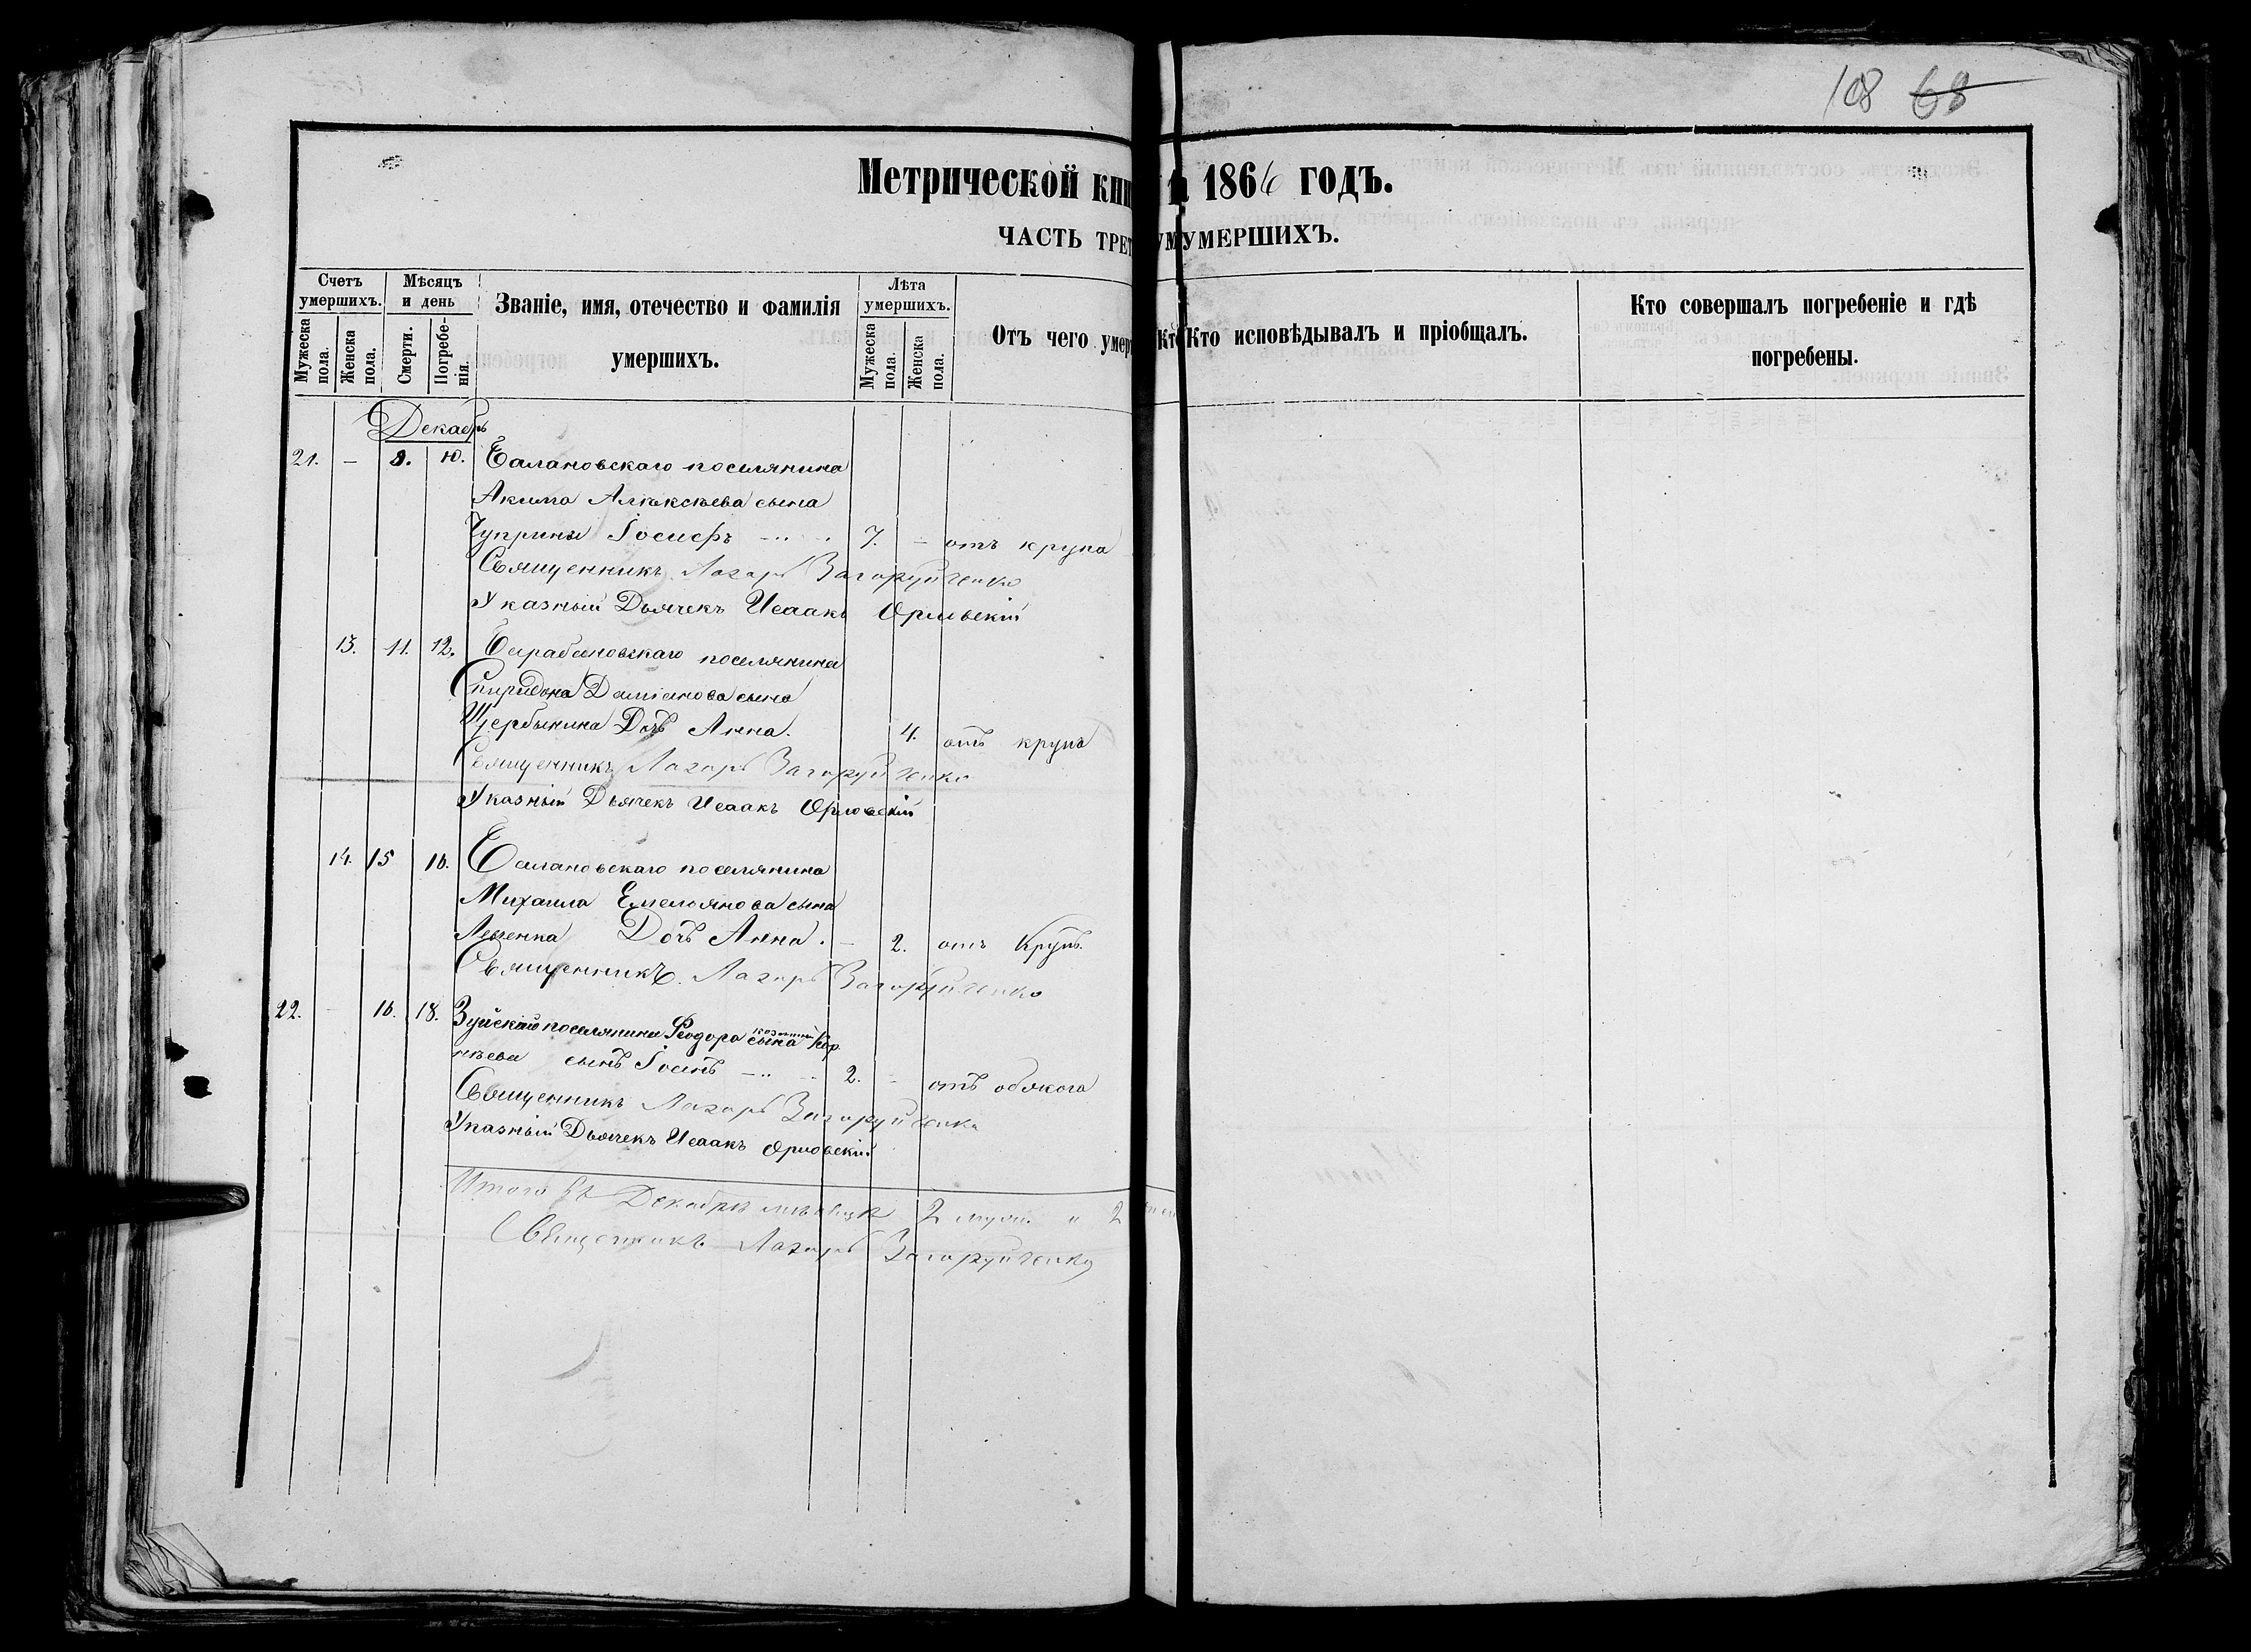 108 68
Метрической кни на 1866 годъ.
ЧАСТЬ ТРЕТ УМЕРШИХЪ.
Счетъ умершихъ. Мѣсяцъ и день Званіе, имя, отечество и фамилія умершихъ. Лѣта умершихъ. Отъ чего умер Кто исповѣдывалъ и пріобщалъ. Кто совершалъ погребеніе и гдѣ погребены.
Мужеска пола. Женска пола. Смерти. Погребенія. Мужеска пола. Женска пола.
Декабрь
21. – 8. 10. поселянина
Акима Алексѣева сына
Чуприны Іосифъ 7. – отъ крупа
Священникъ Лазарь Загоруйченко
Указный Дьячекъ Исаакъ Орловскій
13. 11. 12. поселянина
Спиридона Даміанова сына
Щербынина Дочь Анна. 4. отъ крупа
Священникъ Лазарь Загоруйченко
Указный Дьячекъ Исаакъ Орловскій
14. 15 16. поселянина
Михаила Емельянова сына
Дочь Анна. – 2. отъ Крупа
Священникъ Лазарь Загоруйченко
22. – 16. 18. Зуйскаго поселянина Ѳеодора сына Кор
нѣева сынъ 2. – отъ
Священникъ Лазарь Загоруйченко
Указный Дьячекъ Исаакъ Орловскій
Итого въ Декабрѣ мѣсяцѣ 2 муж. и 2
Священникъ Лазарь Загоруйченко